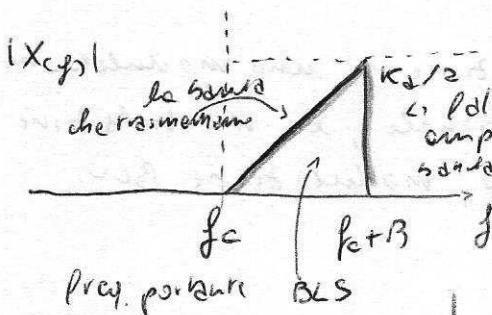 |X(f)|
la banda
che trasmettiamo
Ka/2
fc
fc+B
f
freq. portante
BLS